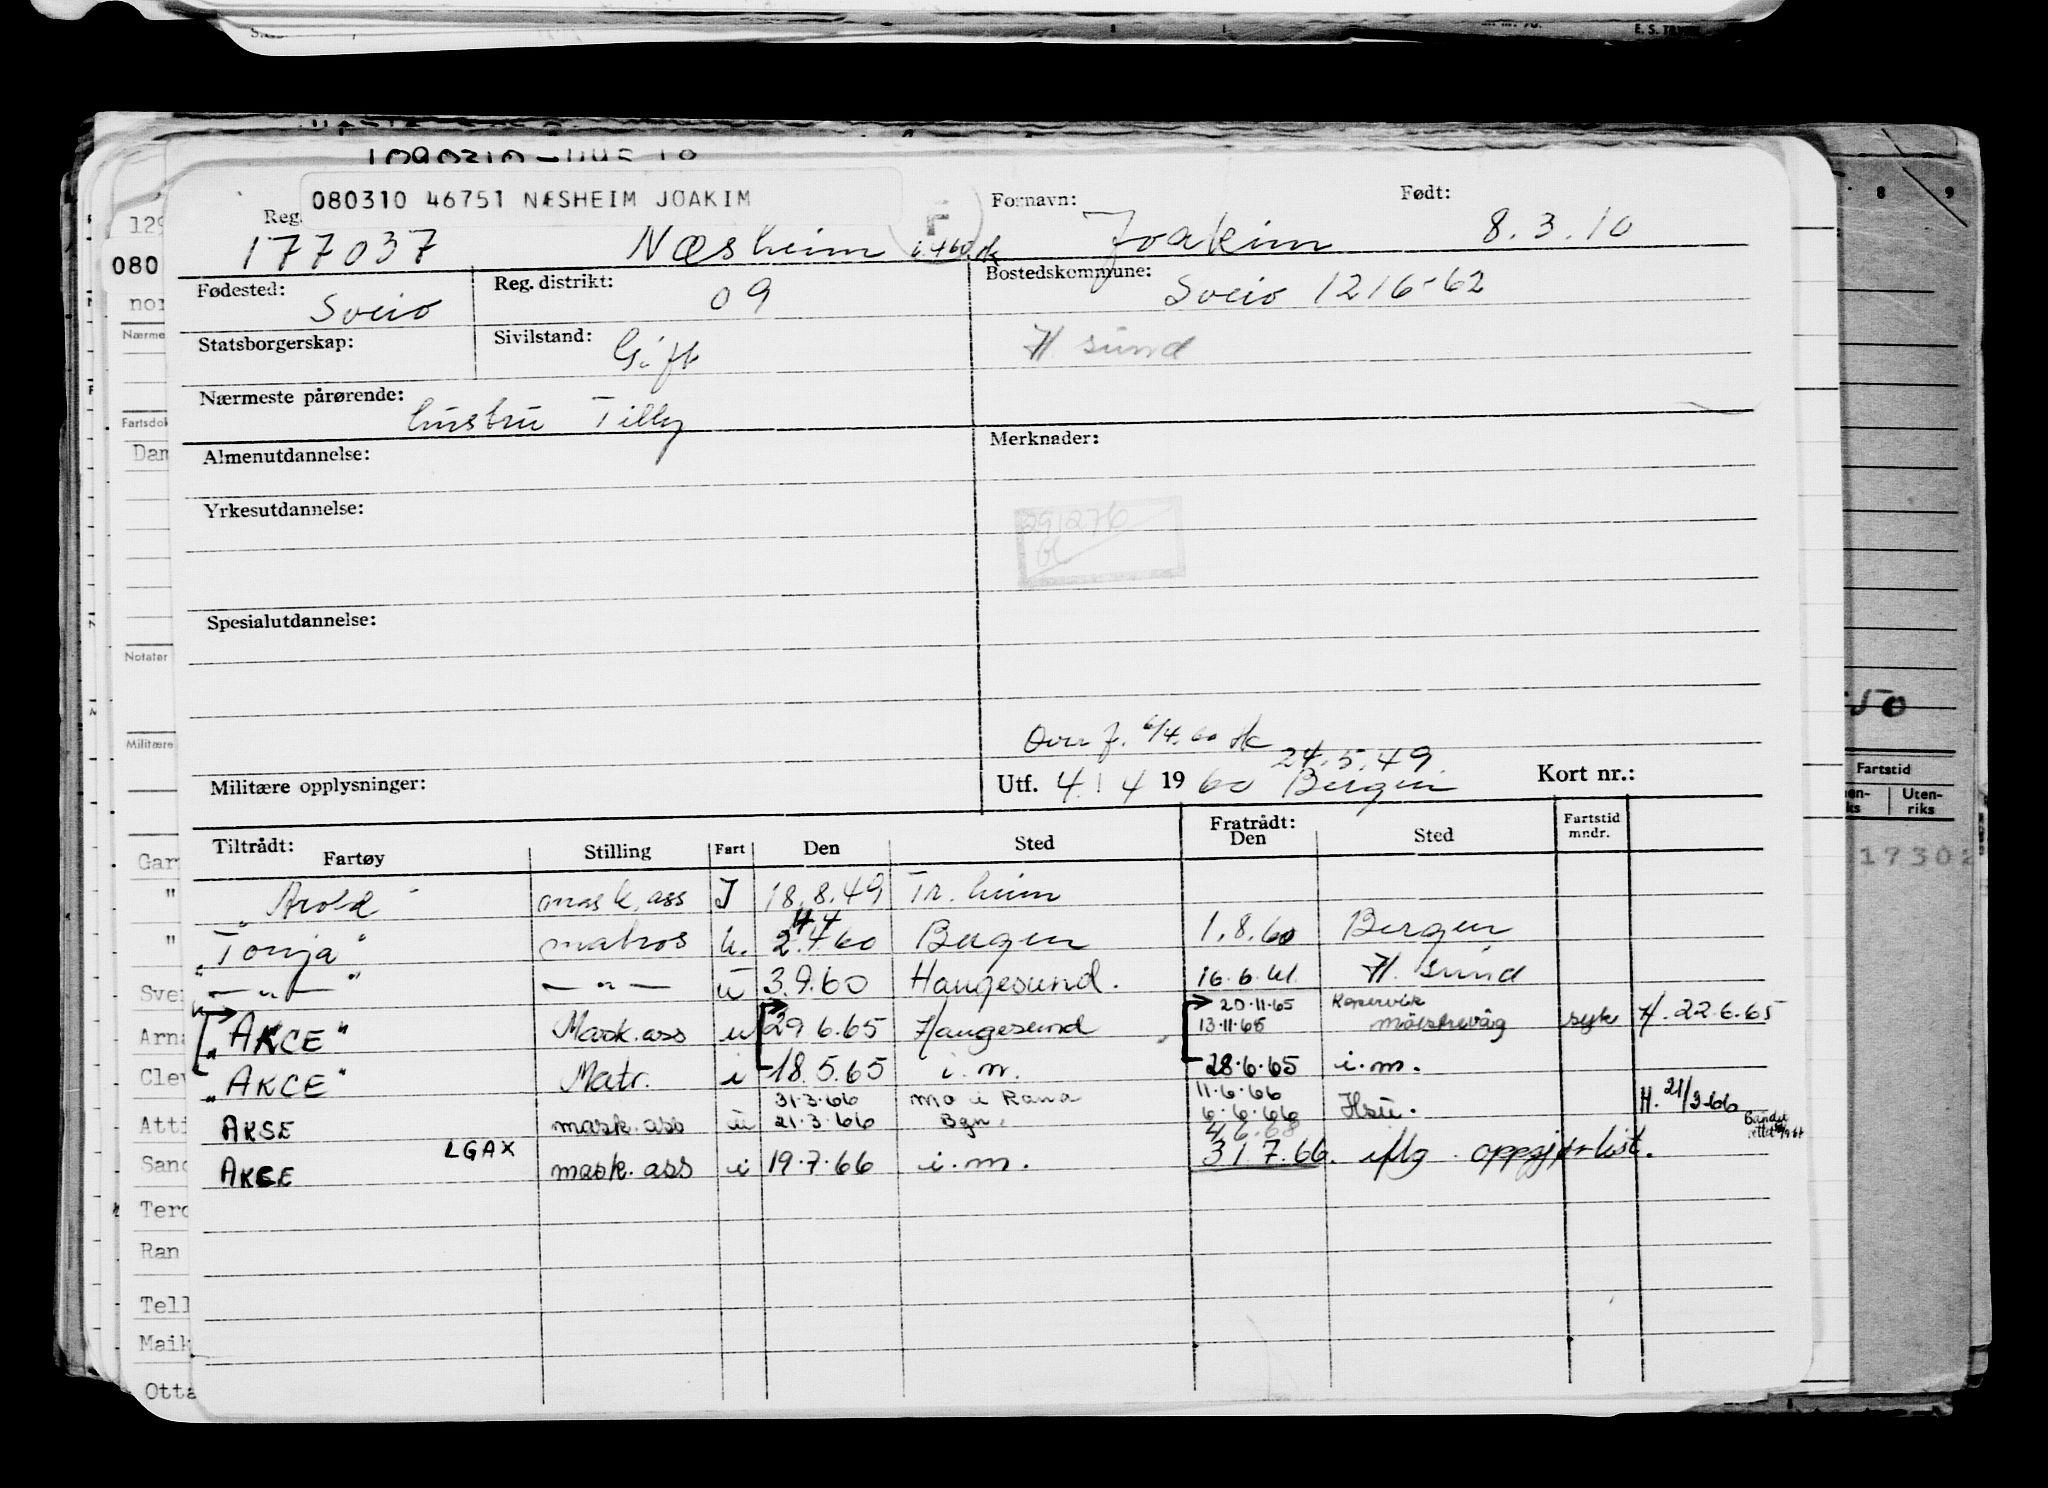 080310 46751 NÆSHEIM JOAKIM
Reg. Fornavn: Født:
177037 Næsheim Joakim 8.3.10
Fødested: Sveio Reg. distrikt: 09 Bostedskommune: Sveio 1216-62
Statsborgerskap: Sivilstand: Gift H. sund
Nærmeste pårørende: hustru Tilly
Almenutdannelse: Merknader:
Yrkesutdannelse:
291276
Spesialutdannelse:
Overf. 6/4.60
24.5.49
Militære opplysninger: Utf. 4/4 1960 Bergen Kort nr.:
Tiltrådt: Fartøy Stilling Fart Den Sted Fratrådt: Den Sted Fartstid mndr.
"Arold" mask.ass I 18.8.49 Tr.heim
"Tonja" matros u. 2.4.60 Bergen 1.8.60 Bergen
— " — — " — u 3.9.60 Haugesund. 16.6.61 H. sund
20.11.65 Kopervik
"AKCE" Mask.ass u 29.6.65 Haugesund 13.11.65 syk H. 22.6.65
"AKCE" Matr. i 18.5.65 i.m. 28.6.65 i.m.
31.3.66 Mo i Rana 11.6.66
AKSE mask.ass u 21.3.66 Bgn. 6.6.66 Hsu. H. 21/3-66
LGAX
AKCE mask.ass i 19.7.66 i.m. 31.7.66. iflg. oppgj.list.
080
Nærme
Fartsdok
Dan
Notater
Militære
Gar
"
"
Sver
Arna
Clev
Atti
Sand
Terd
Ran
Tell
Maik
Otta
8 9
50
Fartstid
Uten-
riks
17302